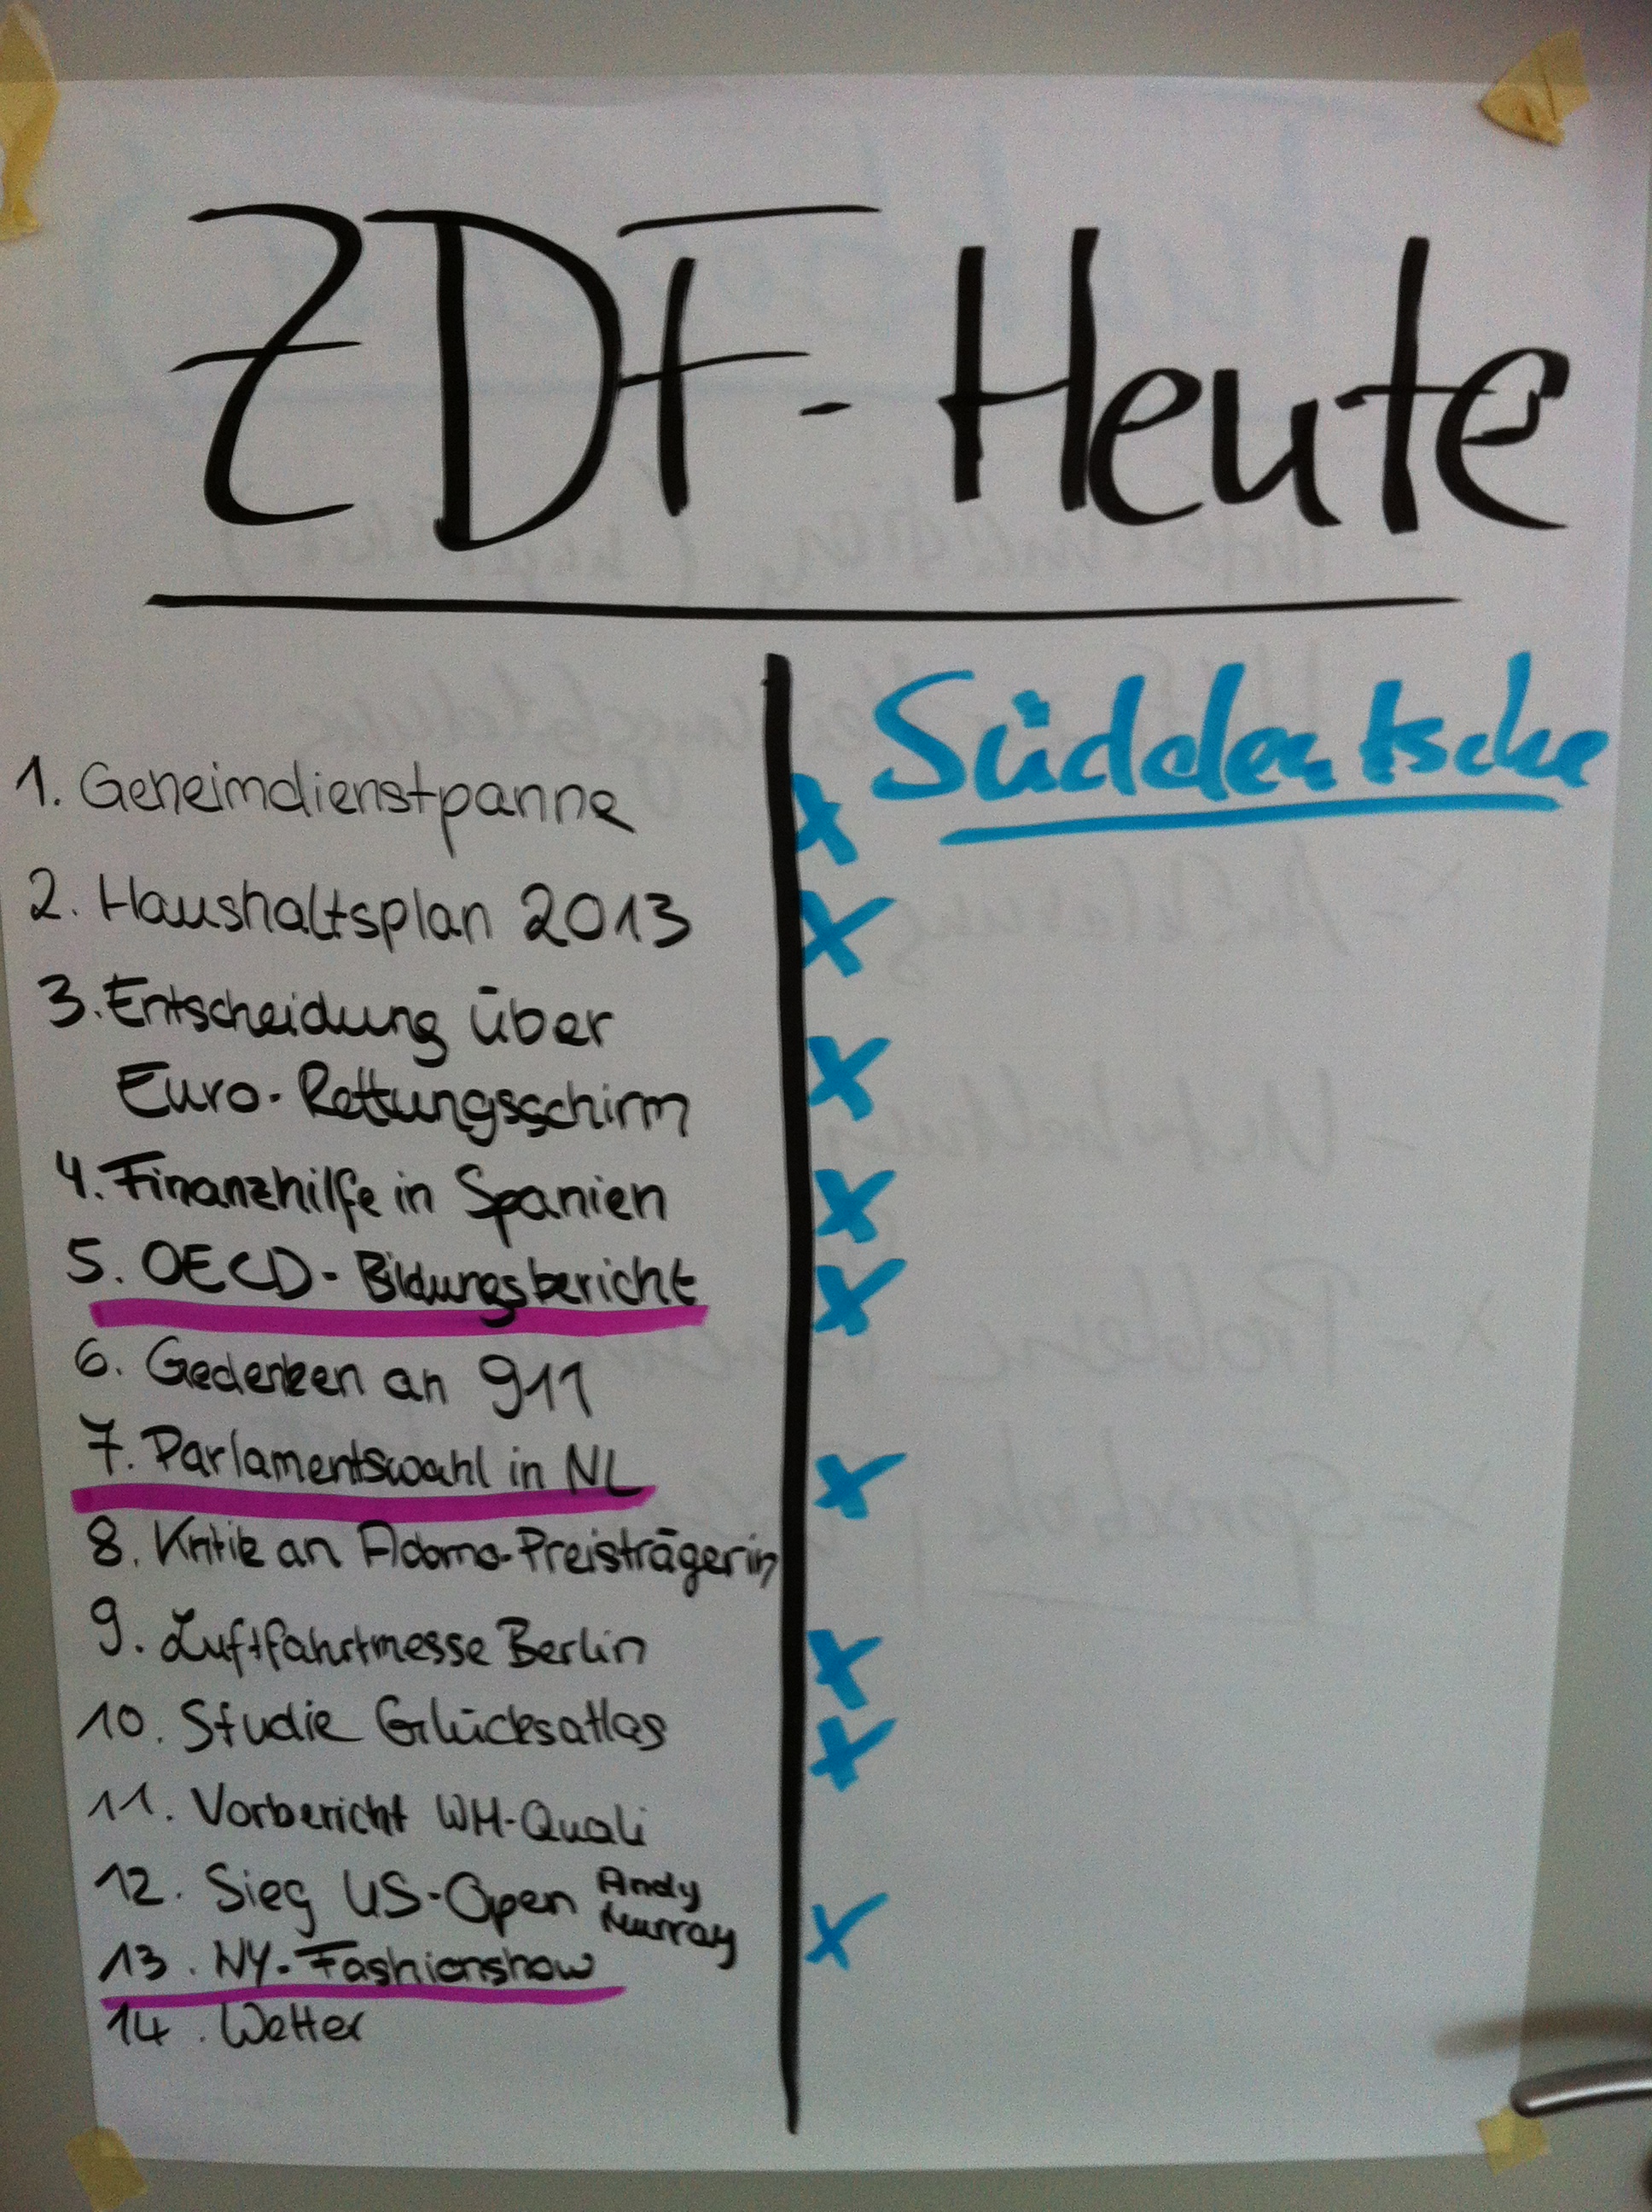 ZDF - Heute
Süddeutsche
1. Geheimdienstpanne x
2. Haushaltsplan 2013 x
3. Entscheidung über
Euro-Rettungsschirm x
4. Finanzhilfe in Spanien x
5. OECD - Bildungsbericht x
6. Gedenken an 911
7. Parlamentswahl in NL x
8. Kritik an Adorno-Preisträgerin
9. Luftfahrtmesse Berlin x
10. Studie Glücksatlas x
11. Vorbericht WM-Quali
12. Sieg US-Open Andy Murray x
13. NY-Fashionshow
14. Wetter